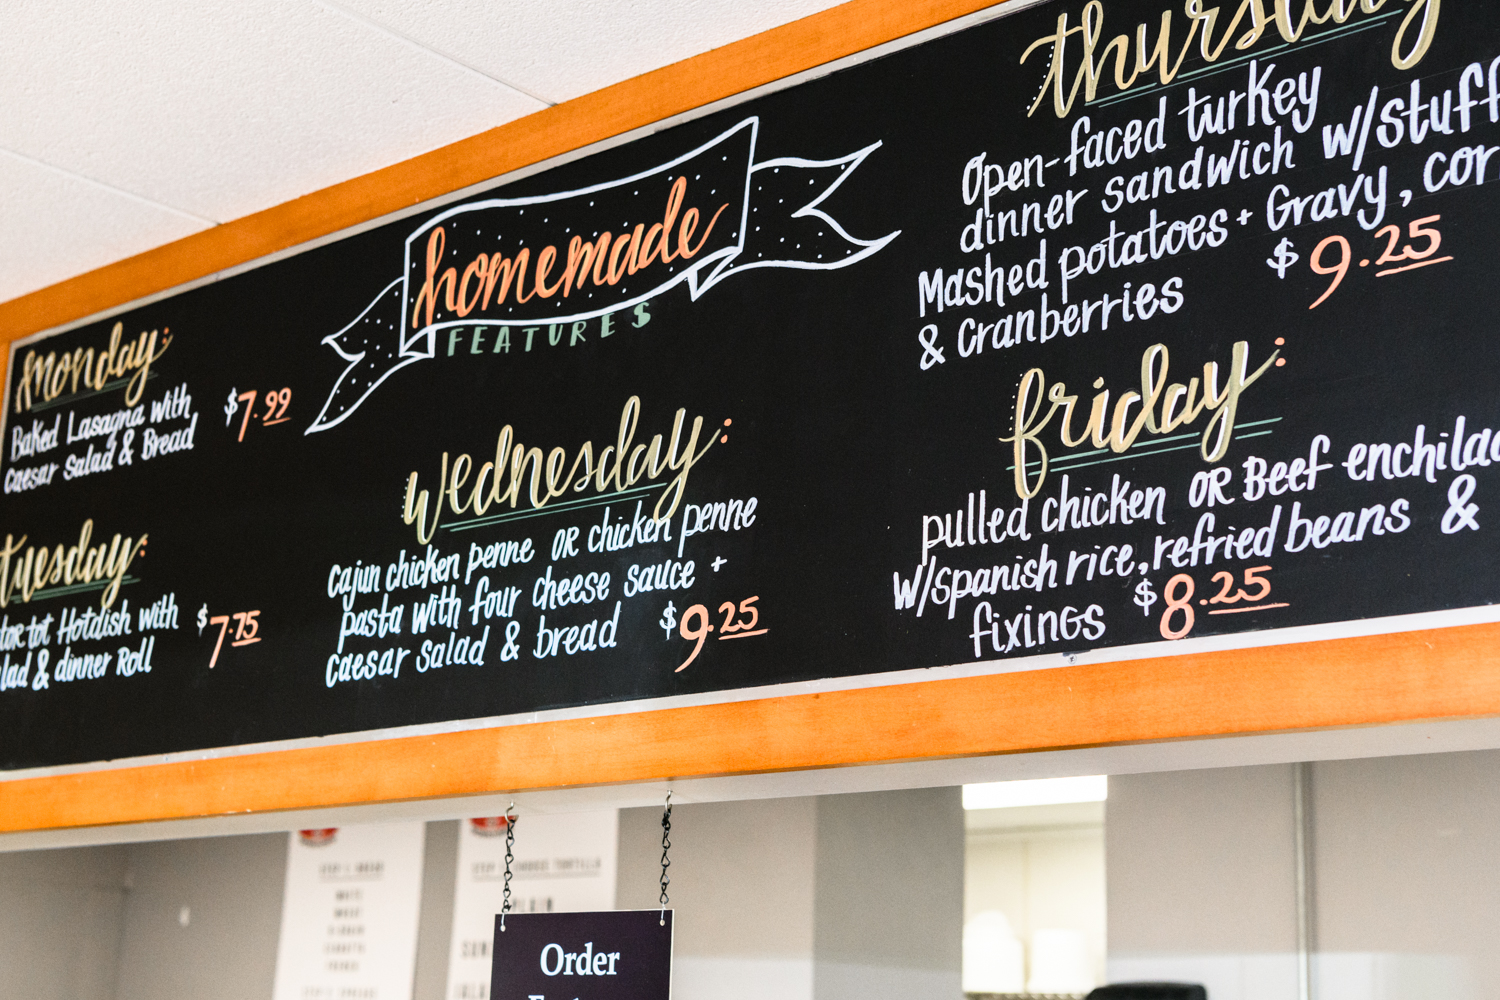 homemade
FEATURES
monday:
Baked Lasagna with
caesar salad & Bread
$7.99
tuesday:
tor tot Hotdish with
lad & dinner Roll
$7.75
wednesday:
cajun chicken penne OR chicken penne
pasta with four cheese sauce +
caesar salad & bread
$9.25
thursday
Open-faced turkey
dinner sandwich w/stuff
Mashed potatoes + Gravy, cor
& cranberries
$9.25
friday:
pulled chicken OR Beef enchilad
w/spanish rice, refried beans &
fixings
$8.25
Order